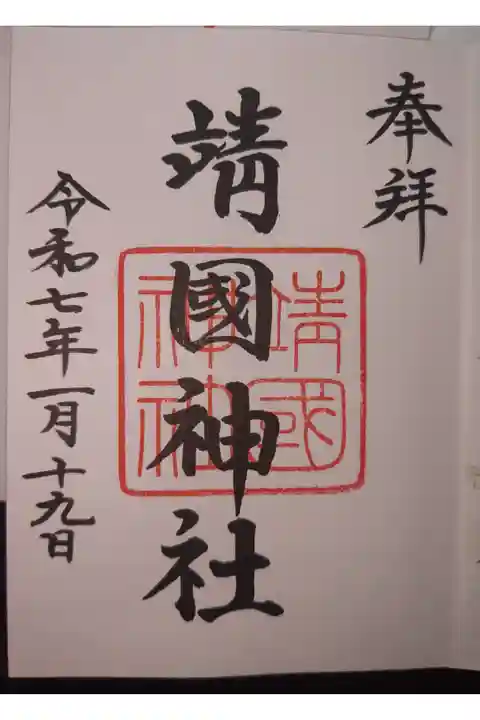 奉拜
靖國神社
靖國
神社
令和七年一月十九日